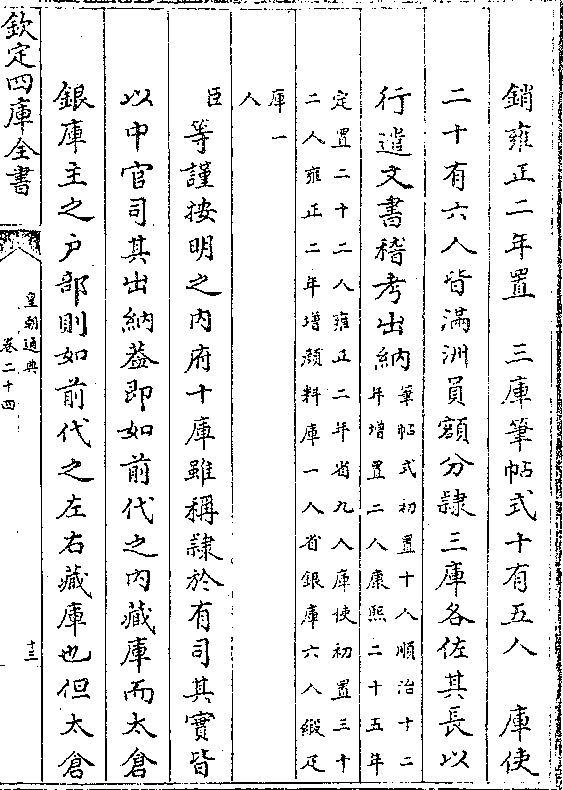 銷雍正二年置　三庫筆帖式十有五人　庫使
二十有六人皆滿洲員額分隸三庫各佐其長以
行遣文書稽考出納筆帖式初置十人順治十二
年增置二人康熙二十五年
定置二十二人雍正二年省九人庫使初置三十
二人雍正二年增顔料庫一人省銀庫六人緞疋
庫一
人
臣等謹按明之内府十庫雖稱隷於有司其實皆
以中官司其出納葢即如前代之内藏庫而太倉
銀庫主之户部則如前代之左右藏庫也但太倉
欽定四庫全書
皇朝通典
卷二十四
十三